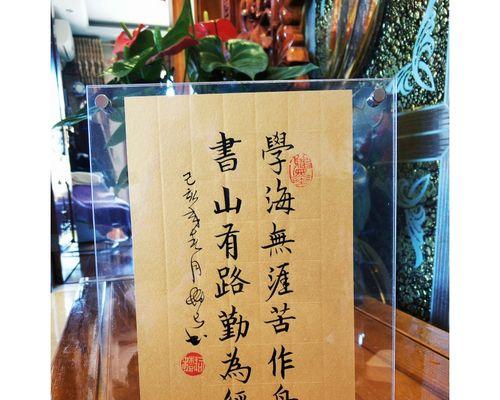 學海無涯苦作
書山有路勤為
己亥年